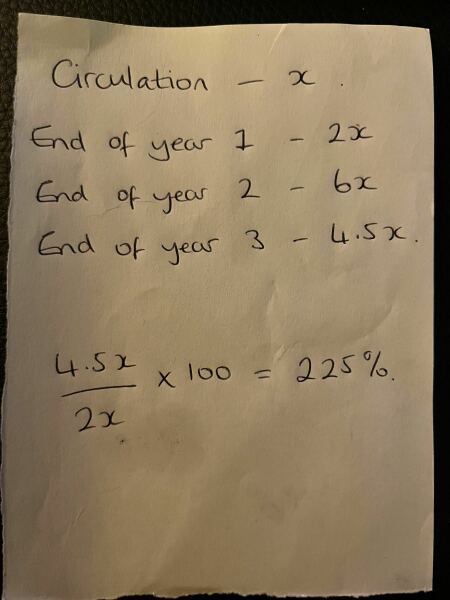 Circulation - x.
End of year 1 - 2x
End of year 2 - 6x
End of year 3 - 4.5x.
4.5x
2x
x 100 = 225%.